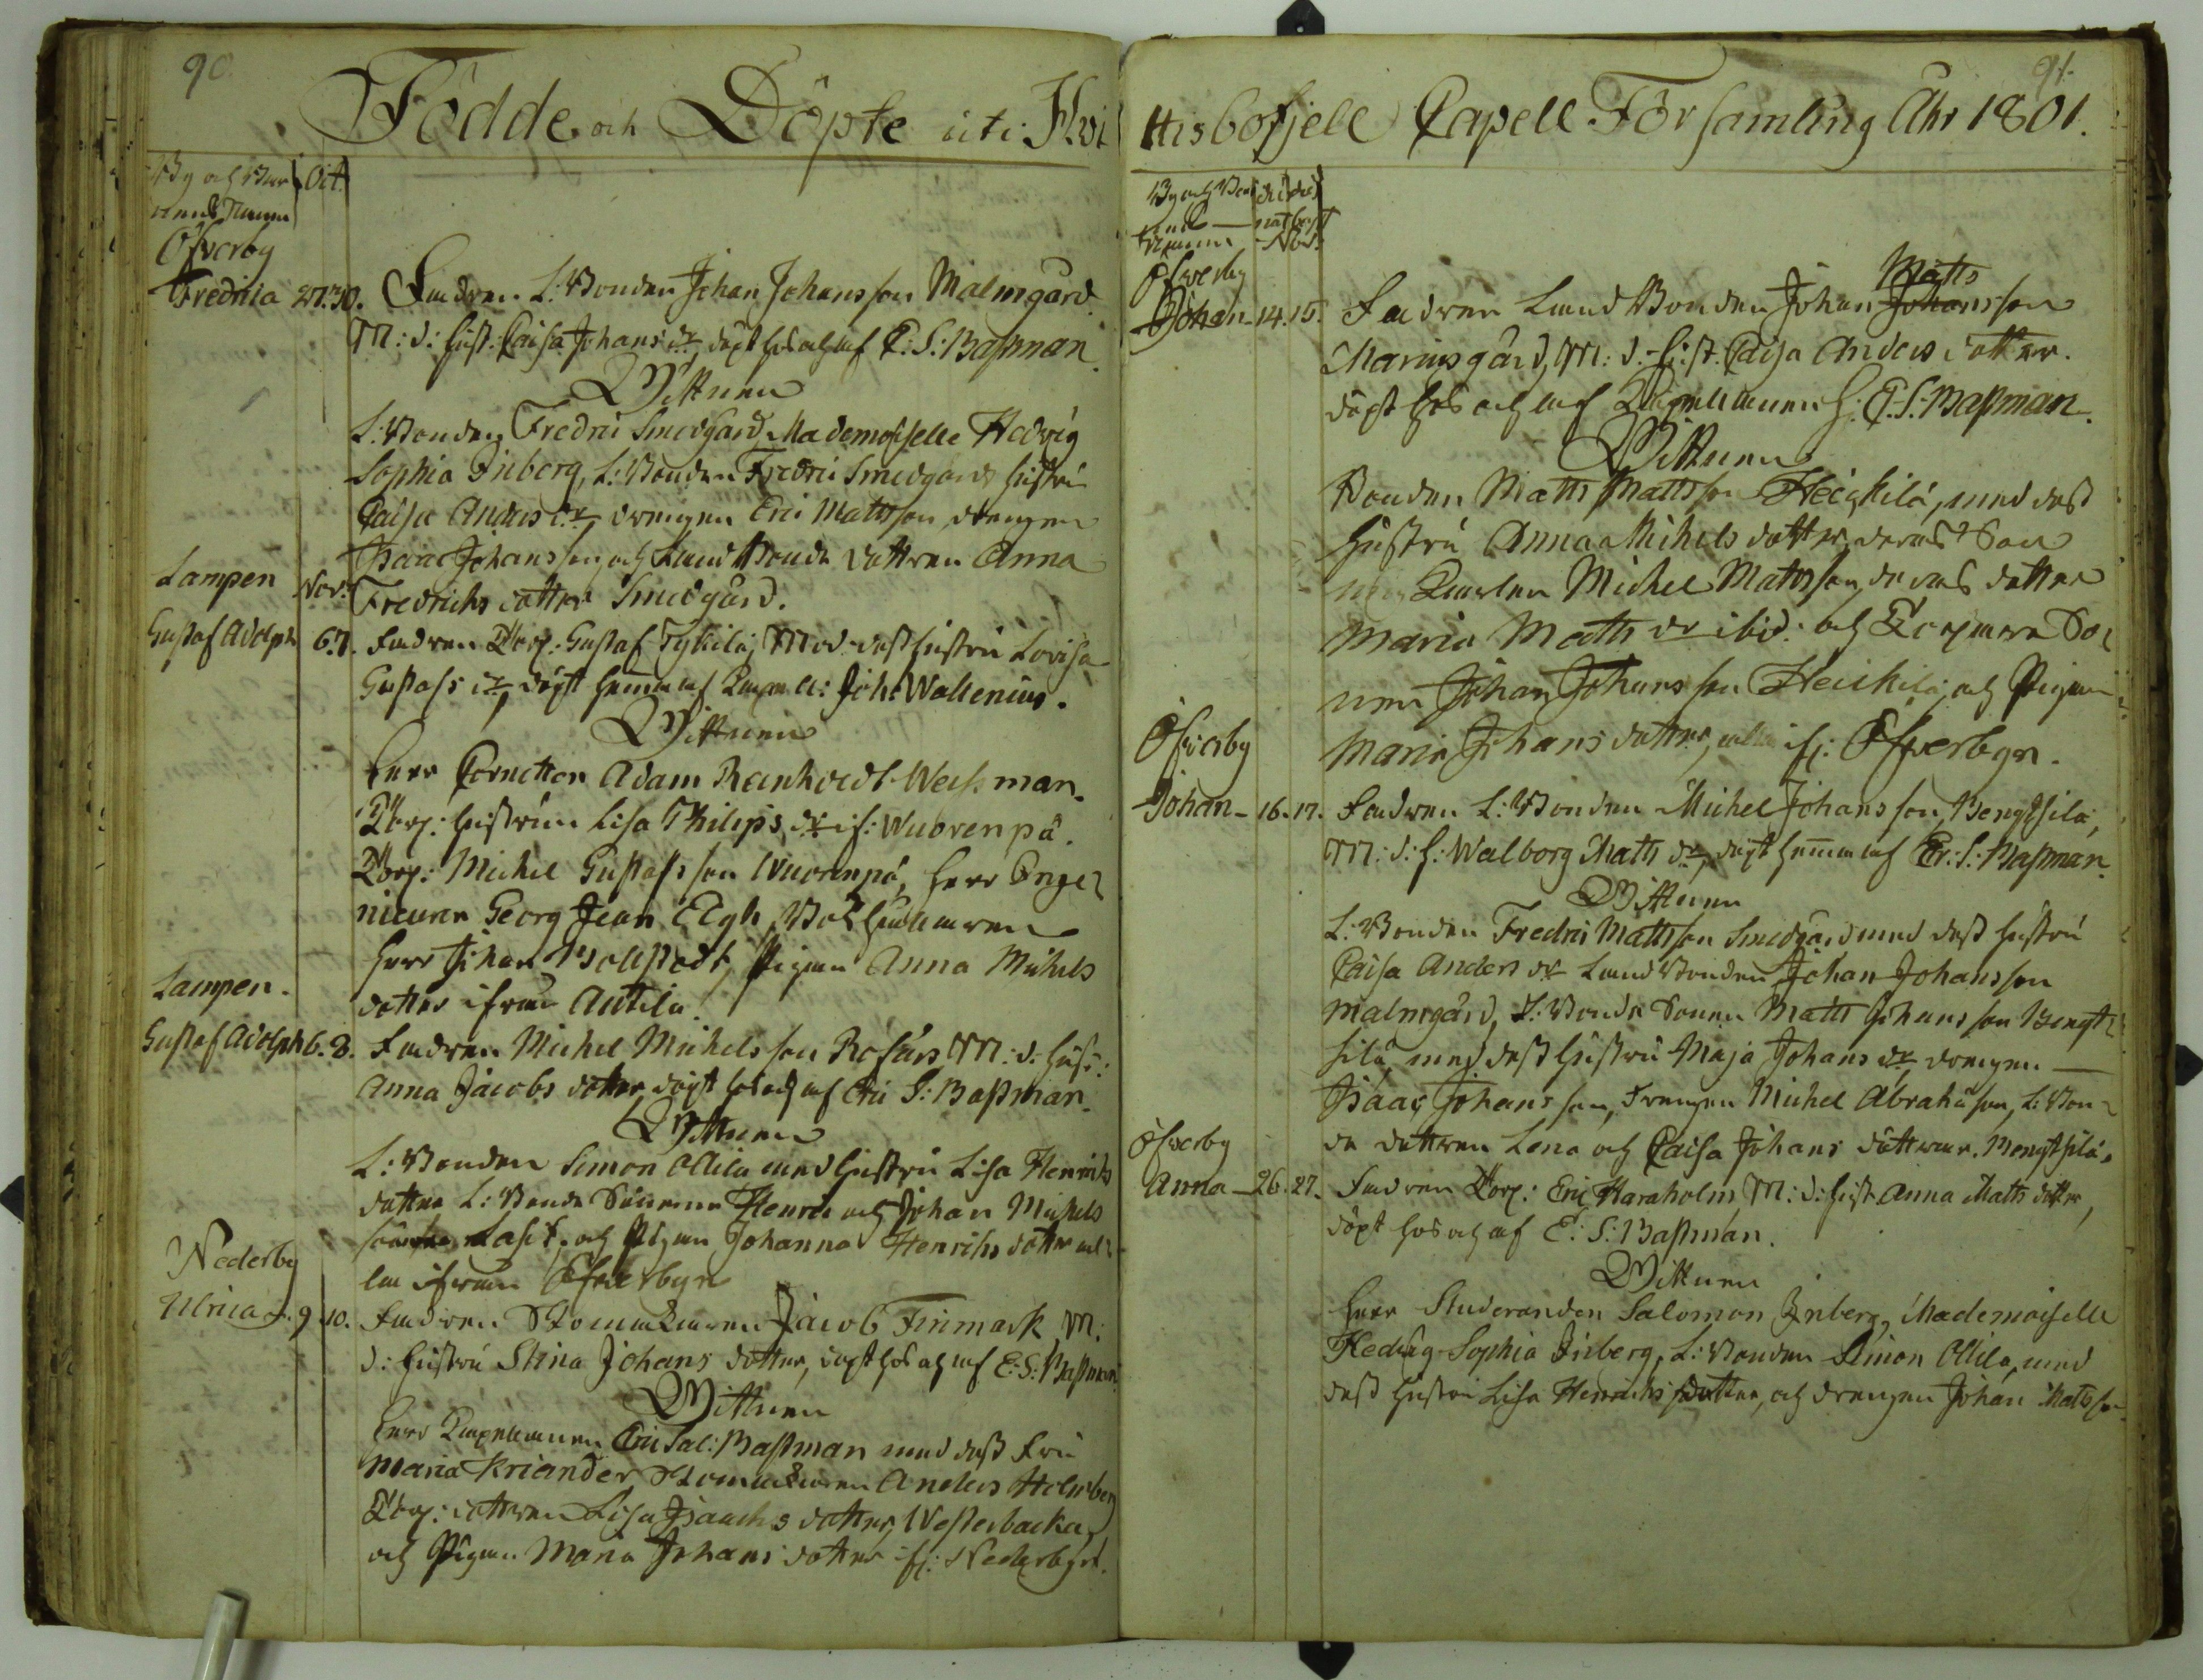 90.
Födde och Döpte uti Hvi
By och Bar
nens Namn
Oct.
Öfverby
Fredrica 27. 30. Fadren L: Bonden Johan Johansson Malmgård
M: d: hust: Caisa Johans dr, döpt hos och af E: S: Bassman.
Wittnen
L: Bonden Fredric Smedgård, Mademoiselle Hedvig
Sophia Inberg, L: Bonden Fredric Smedgårds hustru
Caisa Anders dr, drengen Eric Mattsson, drengen
Isaac Johansson, och Landtbonde dottren Anna
Fredrichs dotter Smedgård.
Lampen Nov.
Gustaf Adolph 6. 7. Fadren Torp: Gustaf Tykilä, Mod. dess hustru Lovisa
Gustafs dr, döpt hemma af Capell: Joh: Wallenius.
Wittnen
Herr Cornetten Adam Reinholdt Weissman.
Torp: hustrun Lisa Philips dr if: Wuorenpä.
Torp: Michel Gustafsson Wuorenpä, Herr Inge
nieuren Georg Jean Elgh, Bokhållaren
Herr Johan Bollstedt, Pigan Anna Michels
dotter ifrån Antila.
Lampen.
Gustaf Adolph 6. 8. Fadren Michel Michelsson Rosärs M: d: hust:
Anna Jacobs dotter, döpt hos och af Eric S: Bassman.
Wittnen
L: Bonden Simon Ollila med hustru Lisa Henrichs
dotter L: Bonde Sönerne Henric och Johan Michels
söner, och Pigan Johanna Henrichs dotter al
la ifrån Öfverbyn
Nederby
Ulrica 9. 10. Fadren Skomakaren Jacob Finmark M:
d: hustru Stina Johans dotter, döpt hos och af E: S: Bassman.
Wittnen
Herr Capellanen Eric Sal: Bassman med dess Fru
Maria Kriander, Skomakaren Anders Holmberg
Torp: dottren Lisa Isaachs dotter, Westerbacka,
och Pigan Maria Johans dotter if: Nederbyn.
91.
ttisbofjell Capell Församling Åhr 1801.
By och Bar
nens
Namn
Nov.
Öfverby
Johan 14. 15. Fadren Landtbonden Johan Johansson Matts
Mariusgård, M: d: Hust. Caisa Anders dotter.
döpt hos och af Capellanen H: E: S: Bassman.
Wittnen
Bonden Matts Mattsson Heickilä, med dess
hustru Anna Michels dotter, deras Son
Michel Mattsson, deras dotter
Maria Matts dr ibid: och Torpare So
nen Johan Johansson Heickilä, och Pigan
Maria Johans dotter, alla if: Öfverbyn.
Öfverby
Johan 16. 17. Fadren L: Bonden Michel Johansson, Bengtsilä,
M: d: h: Walborg Matts dr, döpt hemma af Er: S: Bassman.
Wittnen
L: Bonden Fredric Mattsson Smedgård med dess hustru
Caisa Anders dr Landtbonden Johan Johansson
Malmgård, L: Bonde Sonen Matts Johansson Bengt
silä, med dess hustru Maja Johans dr, drengen
Isaac Johansson, drengen Michel Abrahāson, L: Bon
de dottren Lena och Caisa Johans döttrar. Bengtsilä.
Öfverby
Anna 26. 27. Fadren Torp: Eric Haraholm, M: d: hust Anna Matts dotter,
döpt hos och af E: S: Bassman.
Wittnen
Herr Studeranden Salomon Inberg, Mademoiselle
Hedvig Sophia Inberg, L: Bonden Simon Ollila, med
dess hustru Lisa Henrichs dotter, och drengen Johan Mattsson